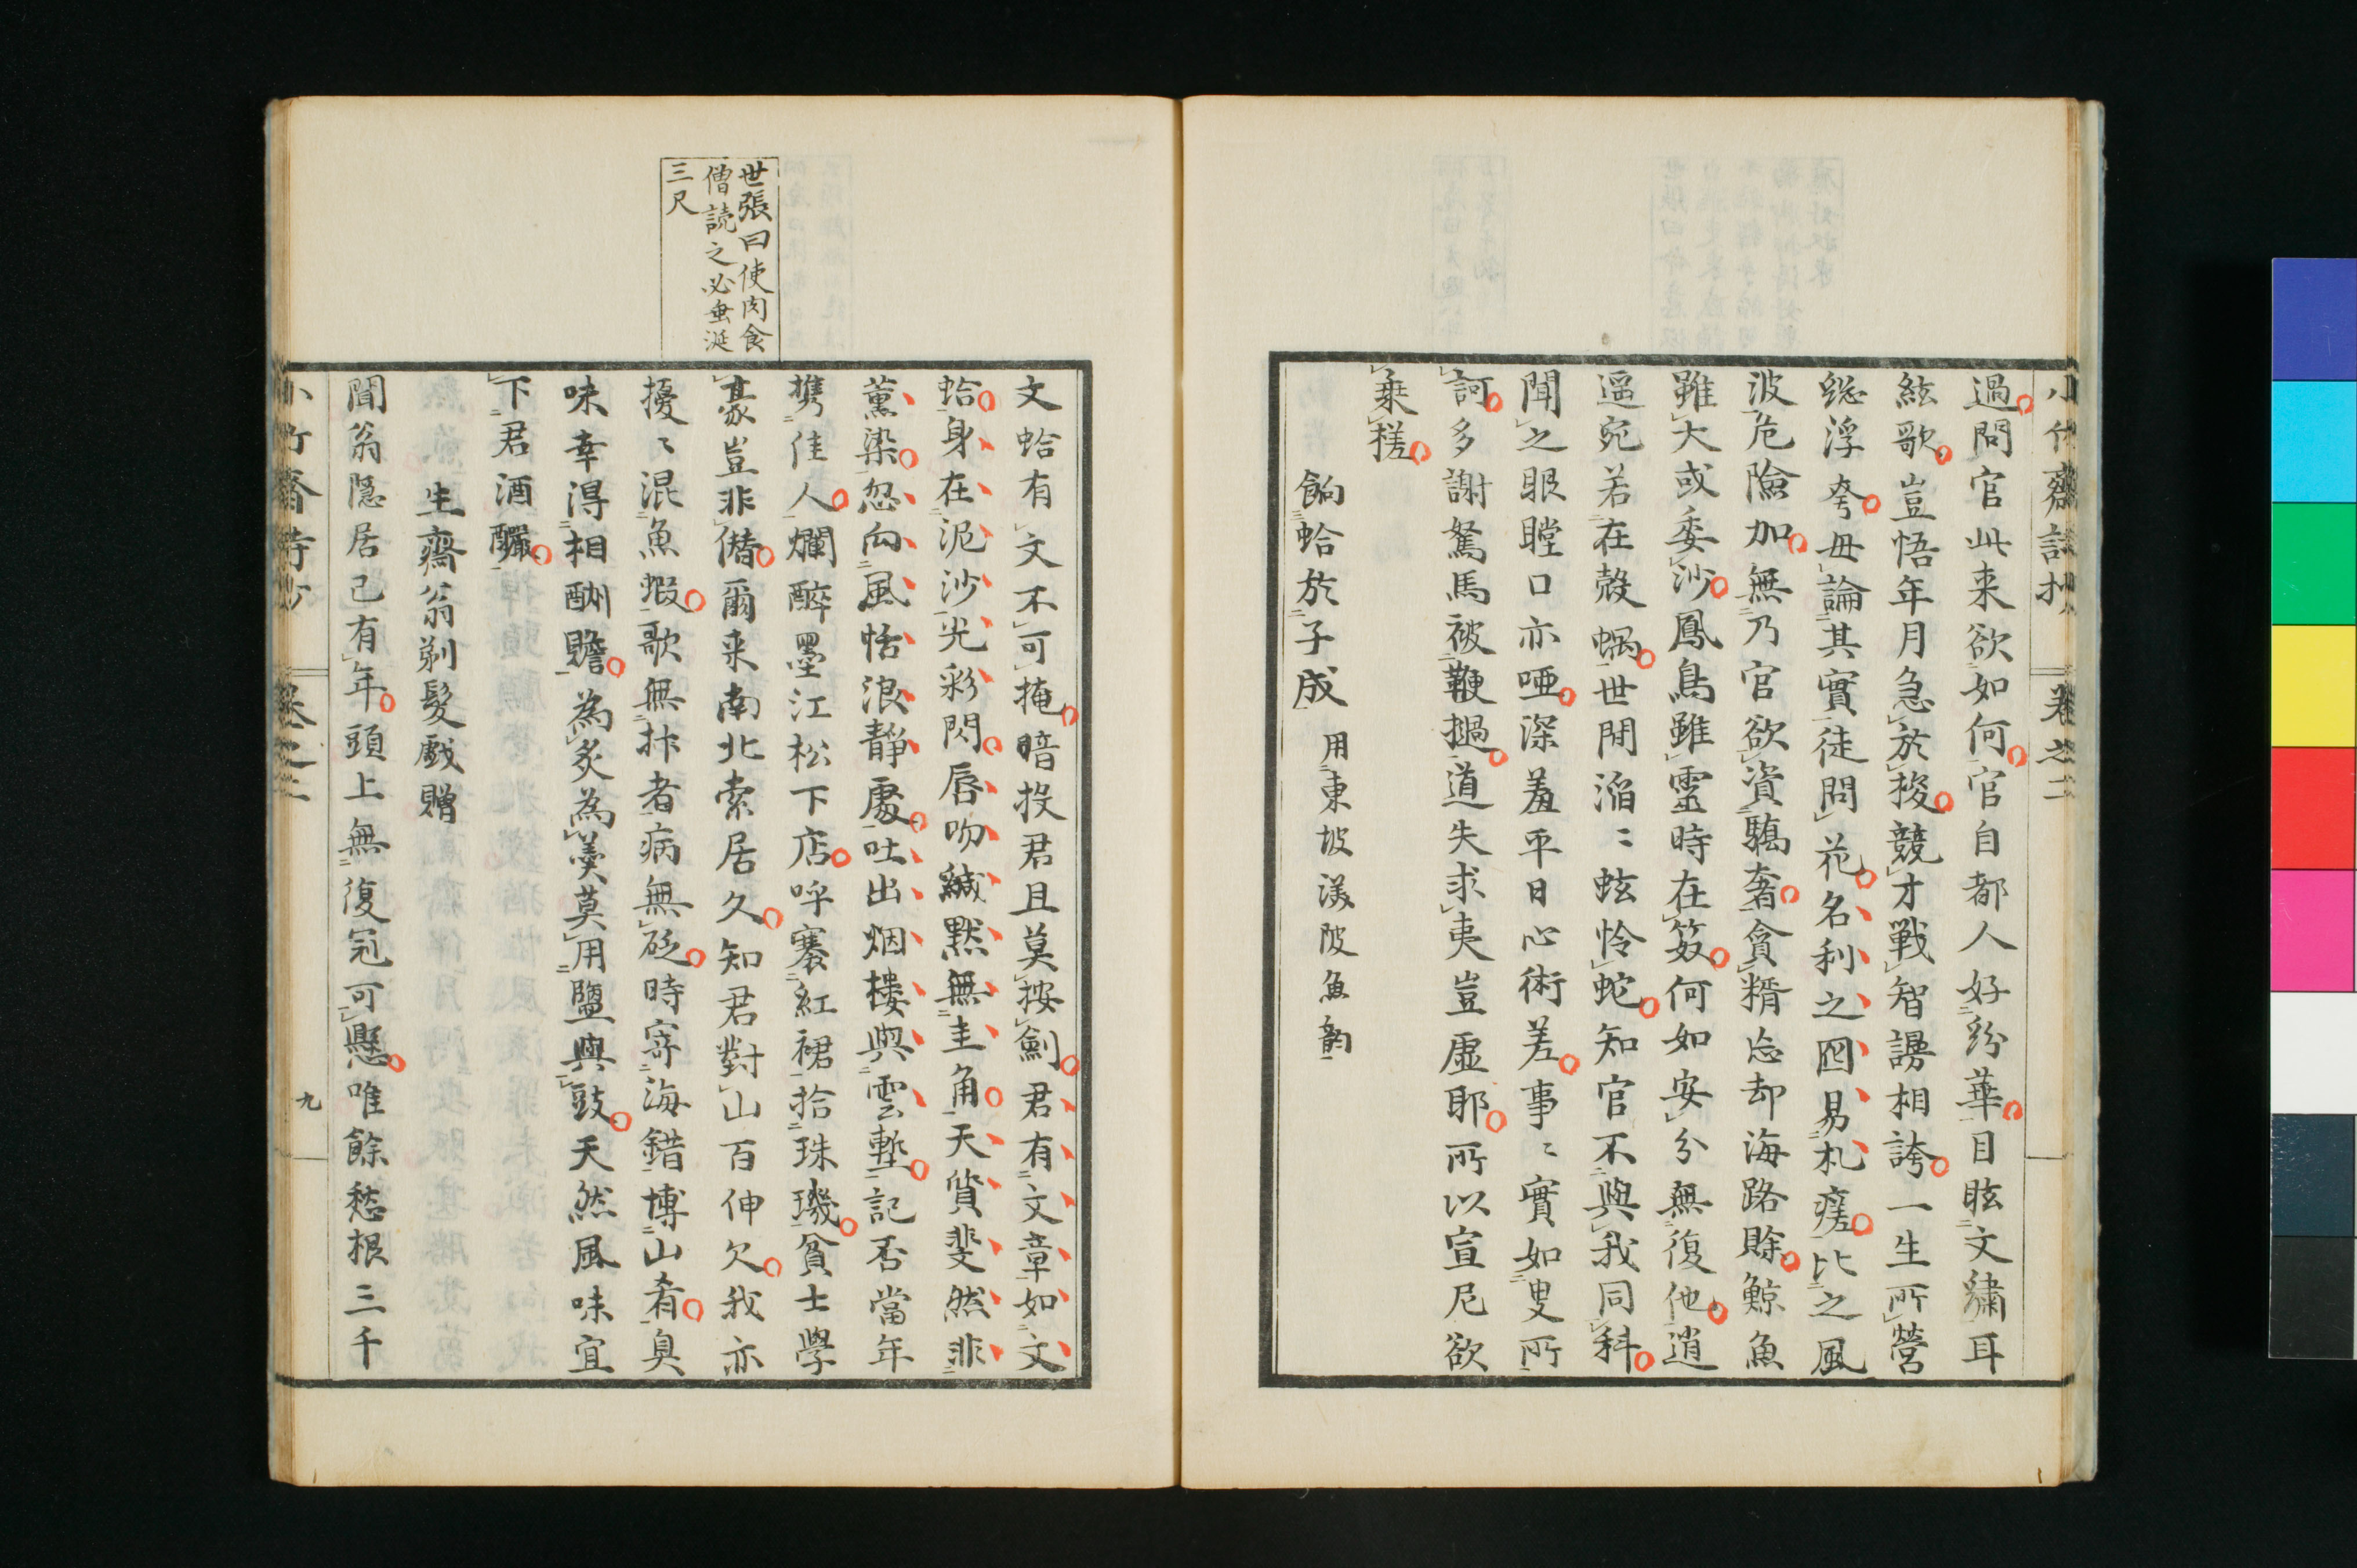 小竹齋詩抄 卷之二
過問官此来欲如何官自都人好紛華目眩文繡耳
絃歌豈悟年月急於梭競才戰智謾相誇一生所營
総浮夸毋論其實徒問花名利之囮易札瘥比之風
波危險加無乃官欲資驕奢貪糈忘却海路賒鯨魚
雖大或委沙鳳鳥雖靈時在笯何如安分無復他逍
遥宛若在殼蝸世間滔〻蚿怜蛇知官不與我同科
聞之眼瞠口亦啞深羞平日心術差事〻實如叟所
訶多謝駑馬被鞭撾道失求夷豈虛耶所以宣尼欲
乗槎
餉蛤於子成 用東坡渼陂魚韵
世張曰使肉食
僧読之必垂涎
三尺
文蛤有文不可掩暗投君且莫按劍君有文章如文
蛤身在泥沙光彩閃唇吻緘黙無圭角天質斐然非
薫染忽向風恬浪靜處吐出烟楼與雲塹記否當年
携佳人爛醉墨江松下店呼褰紅裙拾珠璣貧士學
豪豈非僭爾来南北索居久知君對山百伸欠我亦
擾〻混魚蝦歌無拤者病無砭時寄海錯博山肴臭
味幸淂相酬贍為炙為羮莫用鹽與豉天然風味宜
下君酒釅
生齋翁剃髮戯贈
聞翁隠居已有年頭上無復冠可懸唯餘愁根三千
小竹齋詩抄 卷之二 九